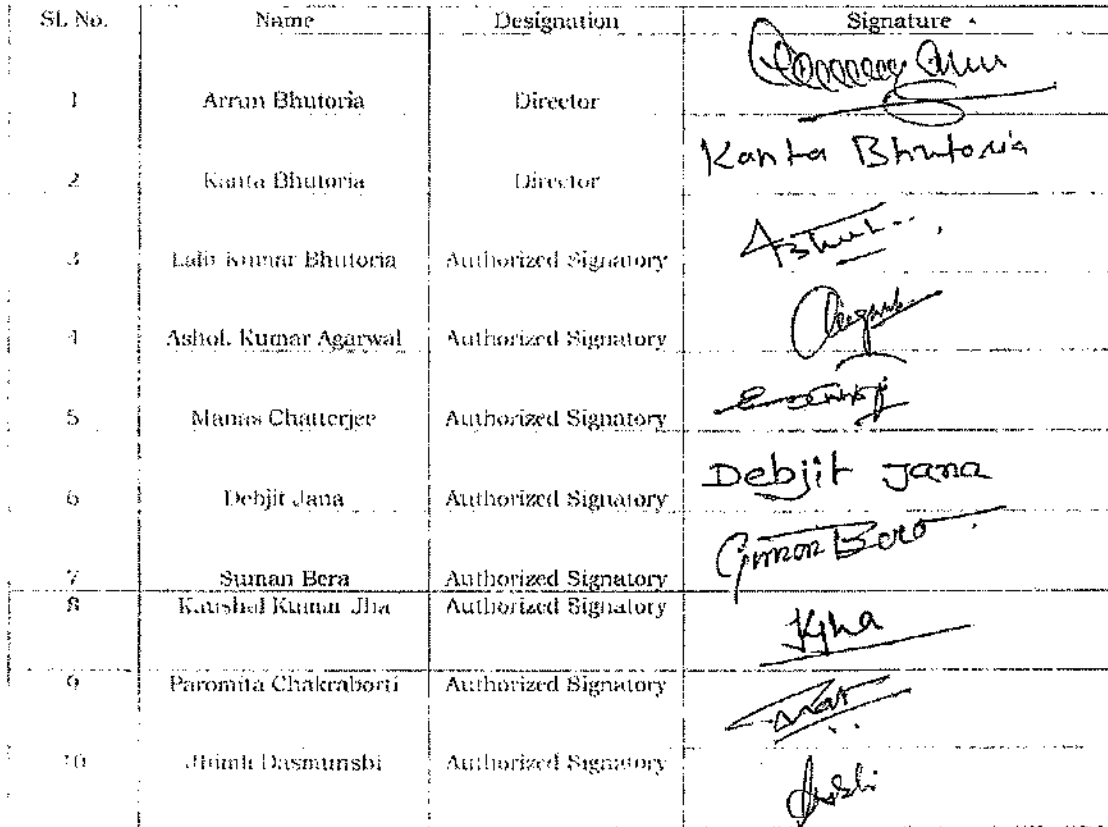 Sl. No. Name Designation Signature
1 Arrun Bhutoria Director
2 Kanta Bhutoria Director Kanta Bhutoria
3 Lalit Kumar Bhutoria Authorized Signatory
4 Ashok Kumar Agarwal Authorized Signatory
5 Manas Chatterjee Authorized Signatory
6 Debjit Jana Authorized Signatory Debjit Jana
7 Suman Bera Authorized Signatory Suman Bera
8 Kaushal Kumar Jha Authorized Signatory KJha
9 Paromita Chakraborti Authorized Signatory
10 Dasmunshi Authorized Signatory